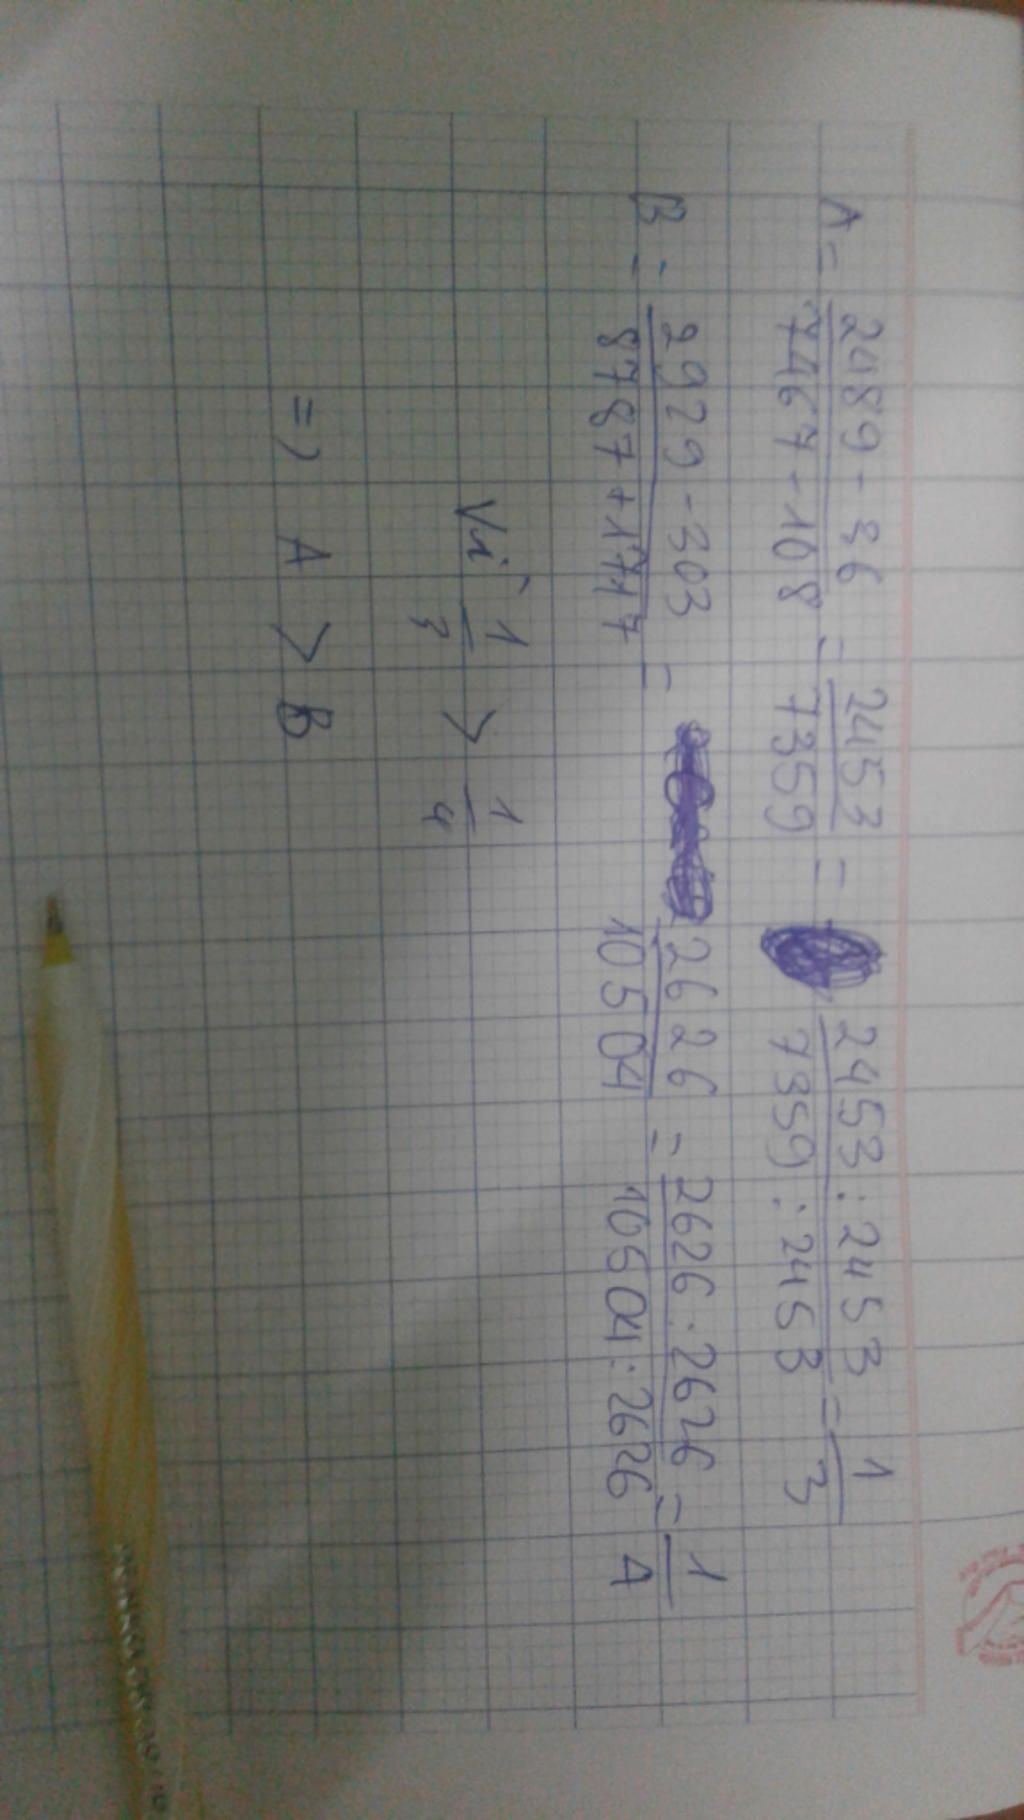 A = \frac{2489 - 36}{7467 - 108} = \frac{2453}{7359} = \frac{2453 : 2453}{7359 : 2453} = \frac{1}{3}
B = \frac{2929 - 303}{8787 + 1717} = \frac{2626}{10504} = \frac{2626 : 2626}{10504 : 2626} = \frac{1}{4}
Vì \frac{1}{3} > \frac{1}{4}
=> A > B